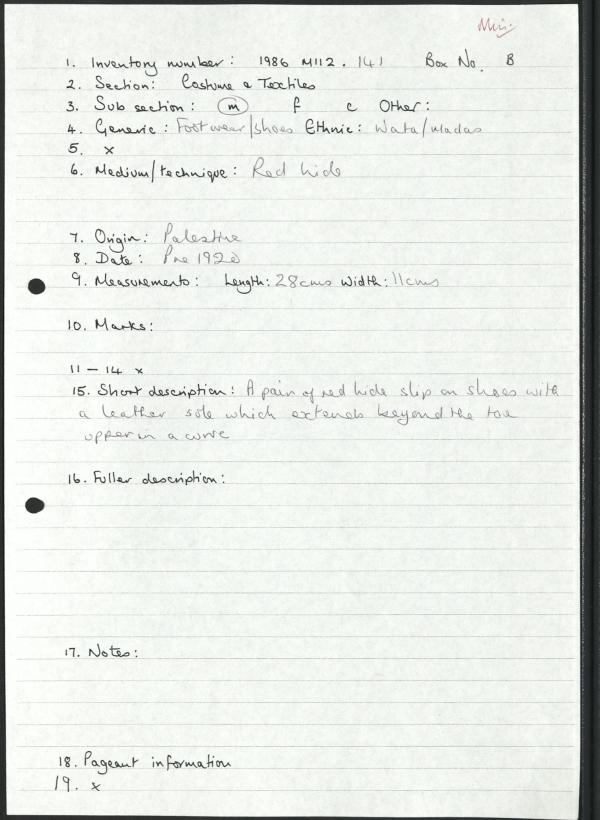 Mus.
1. Inventory number: 1986 M112.141 Box No. B
2. Section: Costume & Textiles
3. Sub section: m f c Other:
4. Generic: Footwear/shoes Ethnic: Wata/madas
5. x
6. Medium/technique: Red hide
7. Origin: Palestine
8. Date: Pre 1920
9. Measurements: Length: 28cms Width: 11cms
10. Marks:
11 - 14 x
15. Short description: A pair of red hide slip on shoes with
a leather sole which extends beyond the toe
upper in a curve
16. Fuller description:
17. Notes:
18. Pageant information
19. x